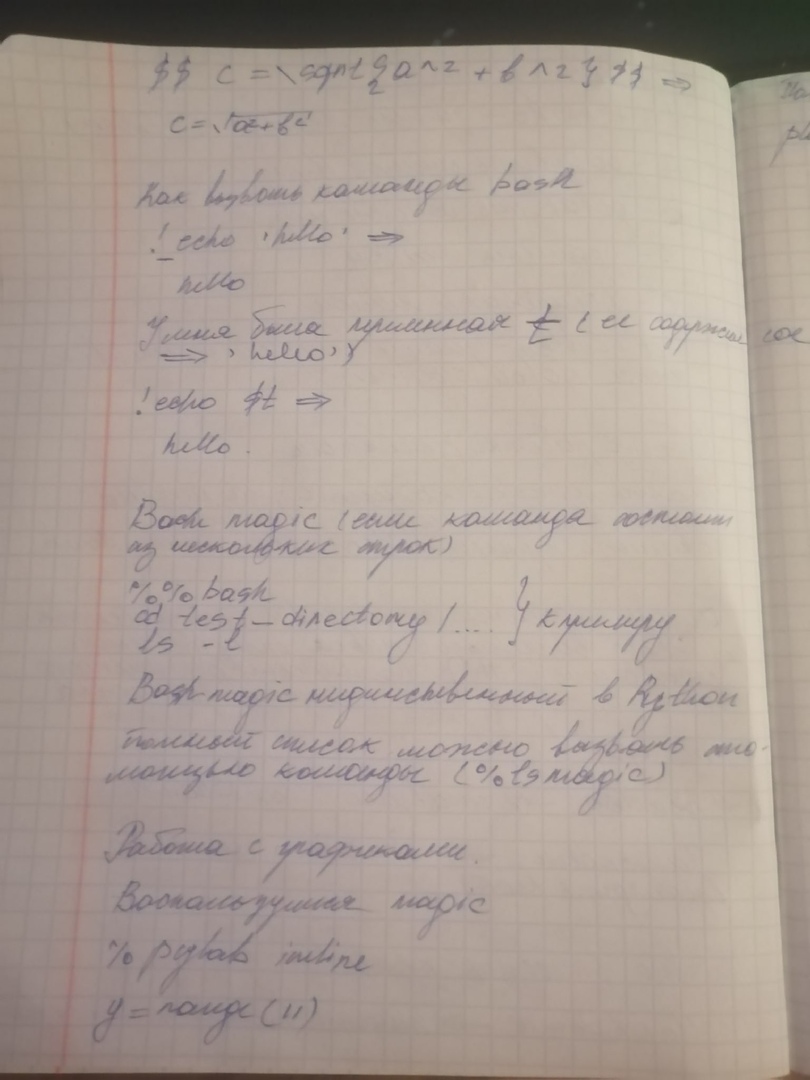 $$ c = \sqrt{a^2 + b^2} $$ ⇒
c = √a²+b²
Как вызвать команды bash
! echo 'hello' ⇒
hello
У меня была переменная t (ее содержимое
⇒ 'hello')
! echo $t ⇒
hello.
Bash magic (если команда состоит
из нескольких строк)
%%bash
cd test_directory/....
ls -l
} К примеру.
Bash magic не единственный в Python
Полный список можно вызвать с по-
мощью команды (%lsmagic)
Работа с графиками.
Воспользуемся magic
% pylab inline
y = range(11)